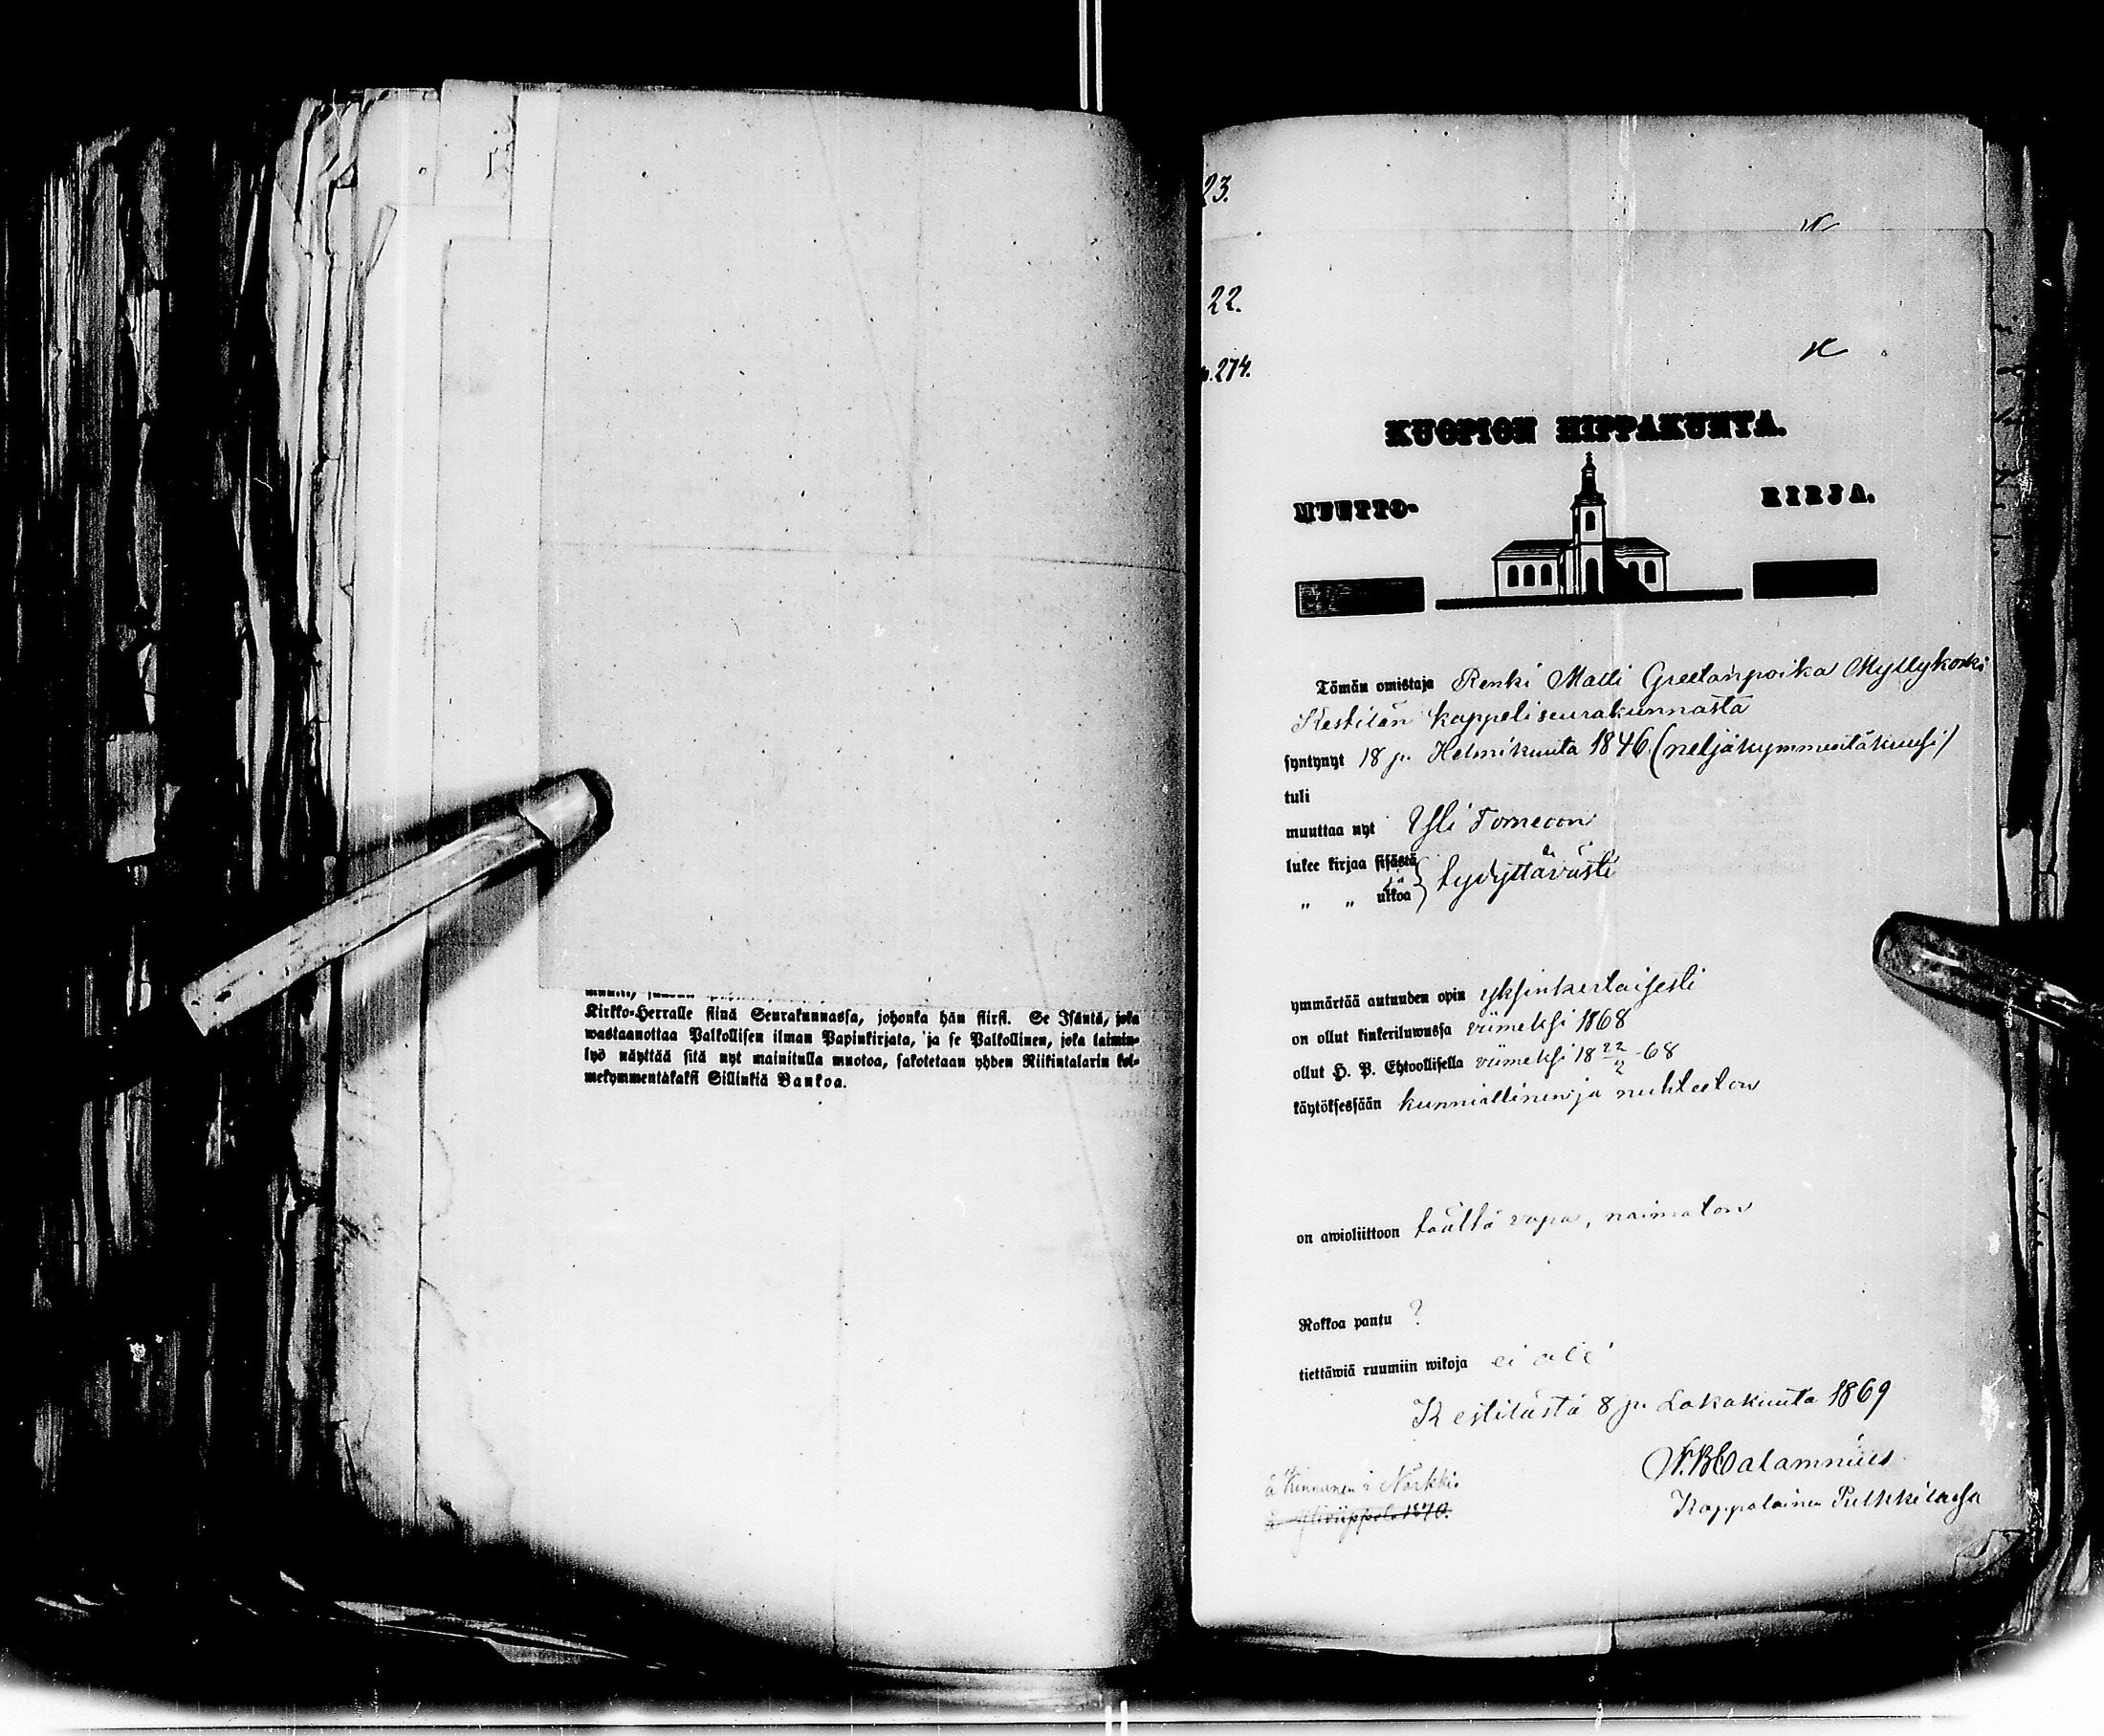 Kirkko-Herralle siinä Seurakunnassa, johonka hän siirsi. Se Isäntä, joka
wastaanottaa Palkollisen ilman Papinkirjata, ja se Palkollinen, joka laimin-
lyö näyttää sitä nyt mainitulla muotoa, sakotetaan yhden Riikintalarin kol-
mekymmentäkaksi Sillinkiä Bankoa.
23.
22.
p. 274.
KUOPION HIPPAKUNTA.
MUUTTO- KIRJA.
Tämän omistaja Renki Matti Greetanpoika Myllykoski
Kestilän kappeliseurakunnasta
syntynyt 18 p. Helmikuuta 1846 (neljäkymmentäkuusi)
tuli
muuttaa nyt Yli Torneoon
lukee kirjaa sisästä } tydyttävästi
" " ulkoa
ymmärtää autuuden opin yksinkertaisesti
on ollut kinkeriluwussa viimeksi 1868
ollut H. P. Ehtoollisella viimeksi 18 22/2 -68
käytöksessään kunniallinen ja nuhteeton
on awioliittoon täältä vapa, naimaton
Rokkoa pantu ?
tiettäwiä ruumiin wikoja ei ole
Kestilästä 8 p. Lokakuuta 1869
Kappalainen Pulkkilassa